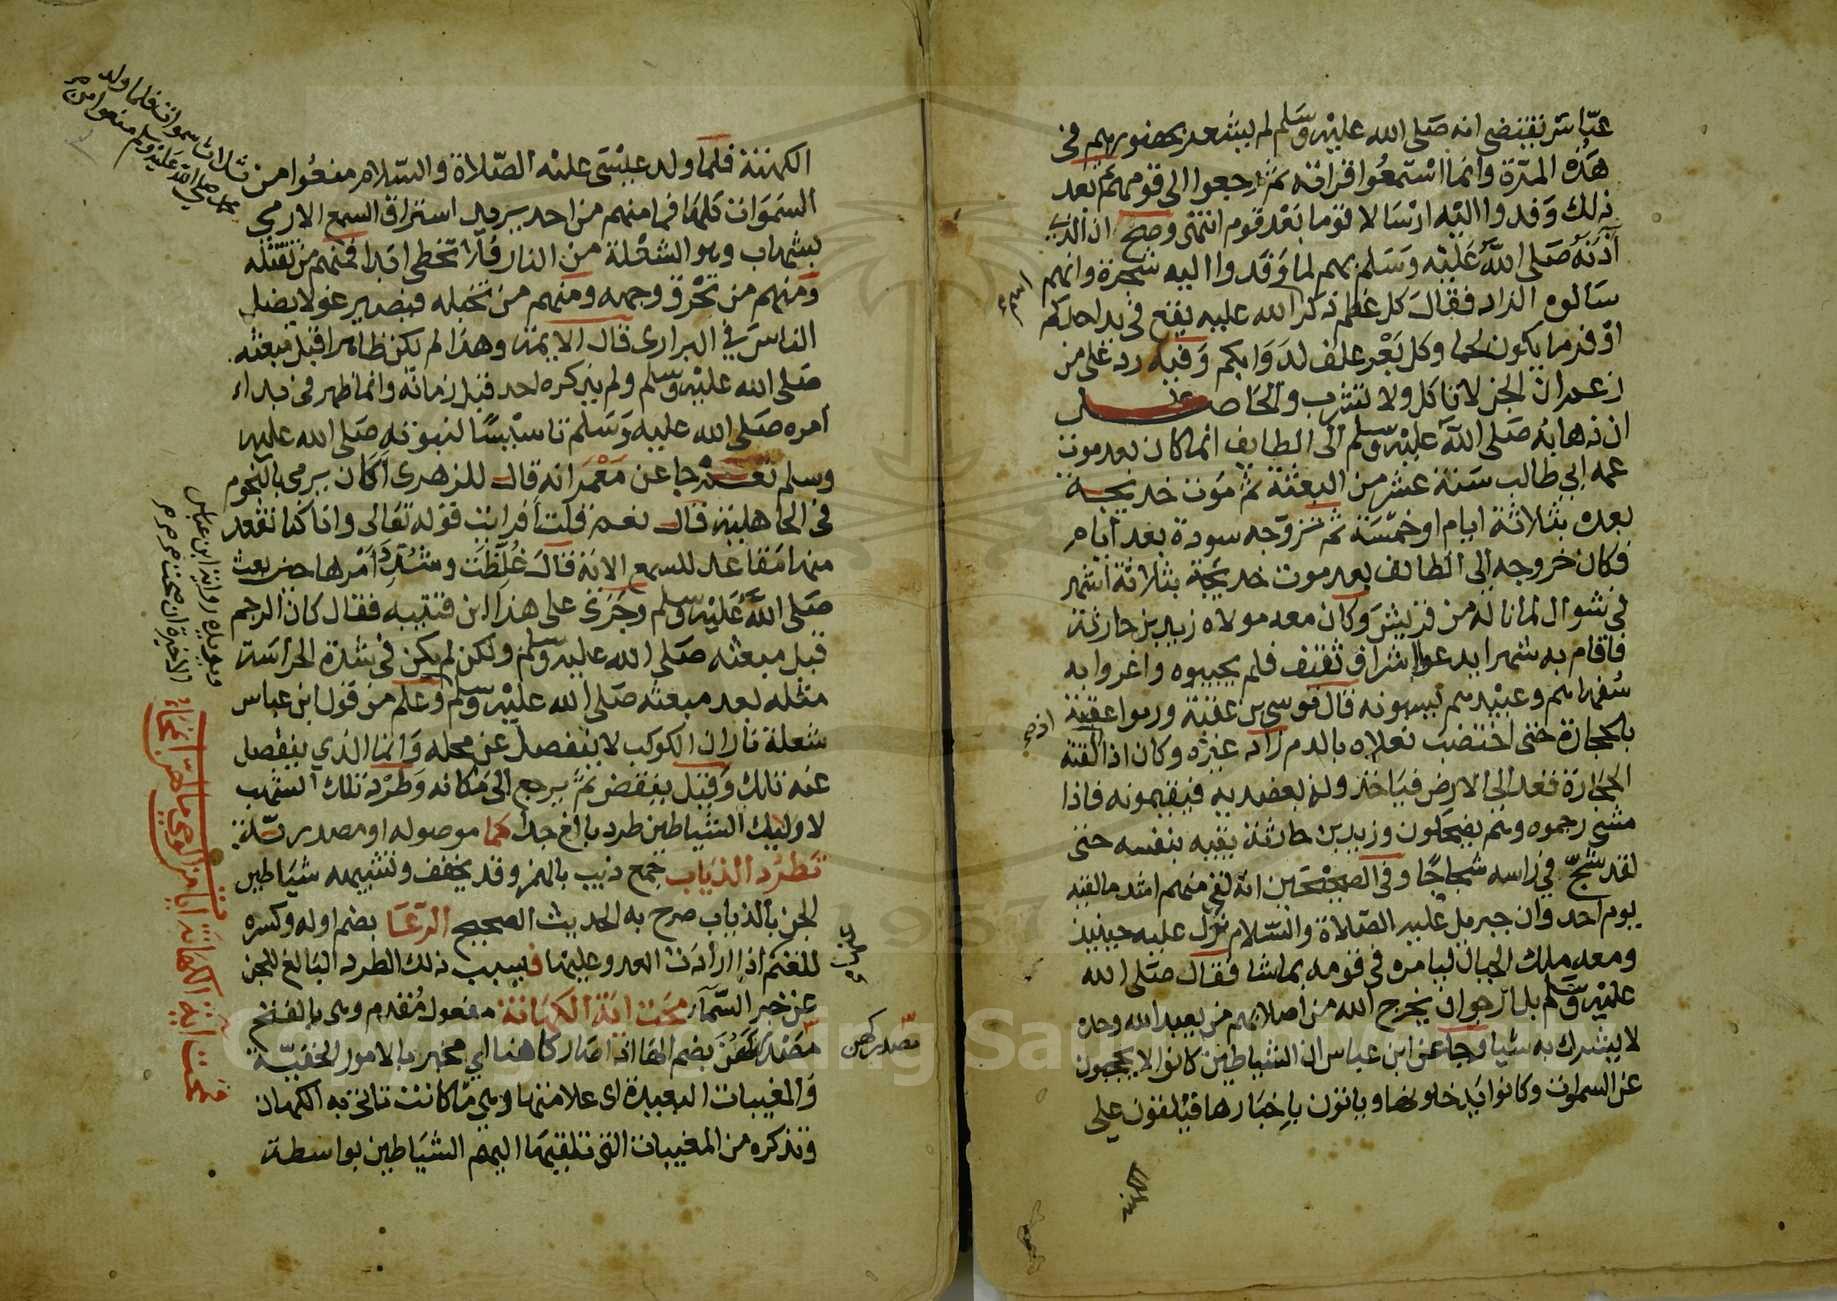 عباس تقتضى انه صلى الله عليه وسلم لم يشعر بحضورهم فى
هذه المرة وانما استمعوا قراته ثم رجعوا الى قومهم ثم بعد
ذلك وفدوا اليه ارسالا قوما بعد قوم انتهى وصح ان الذى
آذنه صلى الله عليه وسلم بهم لما وفدوا اليه شجرة وانهم
سالوه الزاد فقال كل عظم ذكر اسم الله عليه يقع فى يد احدكم
اوفر ما يكون لحما وكل بعر علف لدوابكم وفيه رد على من
زعم ان الجن لا تاكل ولا تشرب والحاصل
ان ذهابه صلى الله عليه وسلم الى الطايف انما كان بعد موت
عمه ابي طالب سنة عشر من البعثة ثم موت خديجة
بعده بثلاثة ايام او خمسة ثم تزوجه سودة بعد ايام
فكان خروجه الى الطائف بعد موت خديجة بثلاثة اشهر
فى شوال لما ناله من قريش وكان معه مولاه زيد بن حارثة
فاقام به شهرا يدعوا اشراف ثقيف فلم يجيبوه واغروا به
سفهاهم وعبيدهم يسبونه قال موسى بن عقبة ورموا عقبيه
بالحجارة حتى اختضب نعلاه بالدم زاد غيره وكان اذا اذلقته
الحجارة قعد الى الارض فياخذونه بعضديه فيقيمونه فاذا
مشى رجموه وهم يضحكون وزيد بن حارثة يقيه بنفسه حتى
لقد شج في راسه شجاجا وفى الصحيحين انه لقى منهم اشد مما لقيه
يوم احد وان جبريل عليه الصلاة والسلام نزل عليه حينيذ
ومعه ملك الجبال ليامره فى قومه بما شا فقال صلى الله
عليه وسلم بل ارجو ان يخرج الله من اصلابهم من يعبد الله وحده
لا يشرك به شيا وجا عن ابن عباس ان الشياطين كانوا لا يحجبون
عن السموات وكانوا يدخلونها وياتون باخبارها فيلقون على
الكهنة
الكهنة فلما ولد عيسى عليه الصلاة والسلام منعوا من ثلاث سموات فلما ولد
محمد صلى الله عليه وسلم منعوا من
السموات كلها فما منهم من احد يريد استراق السمع الا رمى
بشهاب وهو الشعلة من النار فلا تخطى ابدا فمنهم من تقتله
ومنهم من تحرق وجهه ومنهم من تخبله فيصير غولا يضل
الناس في البرارى قال الايمة وهذا لم يكن ظاهرا قبل مبعثه
صلى الله عليه وسلم ولم يذكره احد قبل زمانه وانما ظهر فى بداء
امره صلى الله عليه وسلم تاسيسا لنبوته صلى الله عليه
وسلم نعم جا عن معمر انه قال للزهرى اكان يرمى بالنجوم
فى الجاهلية قال نعم قلت افرايت قوله تعالى وانا كنا نقعد
منها مقاعد للسمع الاية قال غلظت وشدد امرها حين بعث
صلى الله عليه وسلم وجرى على هذا ابن قتيبه فقال كان الرجم
قبل مبعثه صلى الله عليه وسلم ولكن لم يكن فى شدة الحراسة
مثله بعد مبعثه صلى الله عليه وسلم وعلم من قول ابن عباس
شعلة نار ان الكوكب لا ينفصل عن محله وانما الذي ينفصل
عنه تلك وقيل ينقض ثم يرجع الى مكانه وطرد تلك الشهب
لاوليك الشياطين طرد بالغ جدا كما موصوله او مصدرية
تطرد الذياب جمع ذيب بالهمز وقد يخفف وتشبيهه شياطين
الجن بالذياب صرح به الحديث الصحيح الرعا بضم اوله وكسره
للغنم اذا ارادت العدو عليها فبسبب ذلك الطرد البالغ للجن
عن خبر السما محت اية الكهانة مفعول مقدم وهى بالفتح
مصدر كهن بضم الها اذا صار كاهنا اي مخبرا بالامور الخفية
والمغيبات البعيدة اى علامتها وهى ما كانت تاتى به الكهان
وتذكره من المغيبات التى تلقيها اليهم الشياطين بواسطة
ويويده رواية ابن عباس
الاخيرة ان صحت
محت آية الكهانة آيات
من الوحي ما لهن انمحاء
مصدر كهن